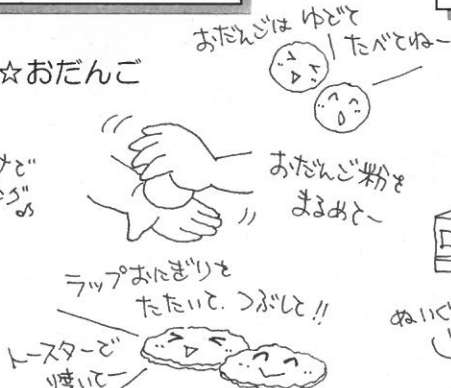 おだんごは ゆでて
たべてね〜
☆おだんご
おだんご粉を
まるめて〜
ラップおにぎりを
たたいて、つぶして!!
トースターで
焼いてー
ぬいぐ